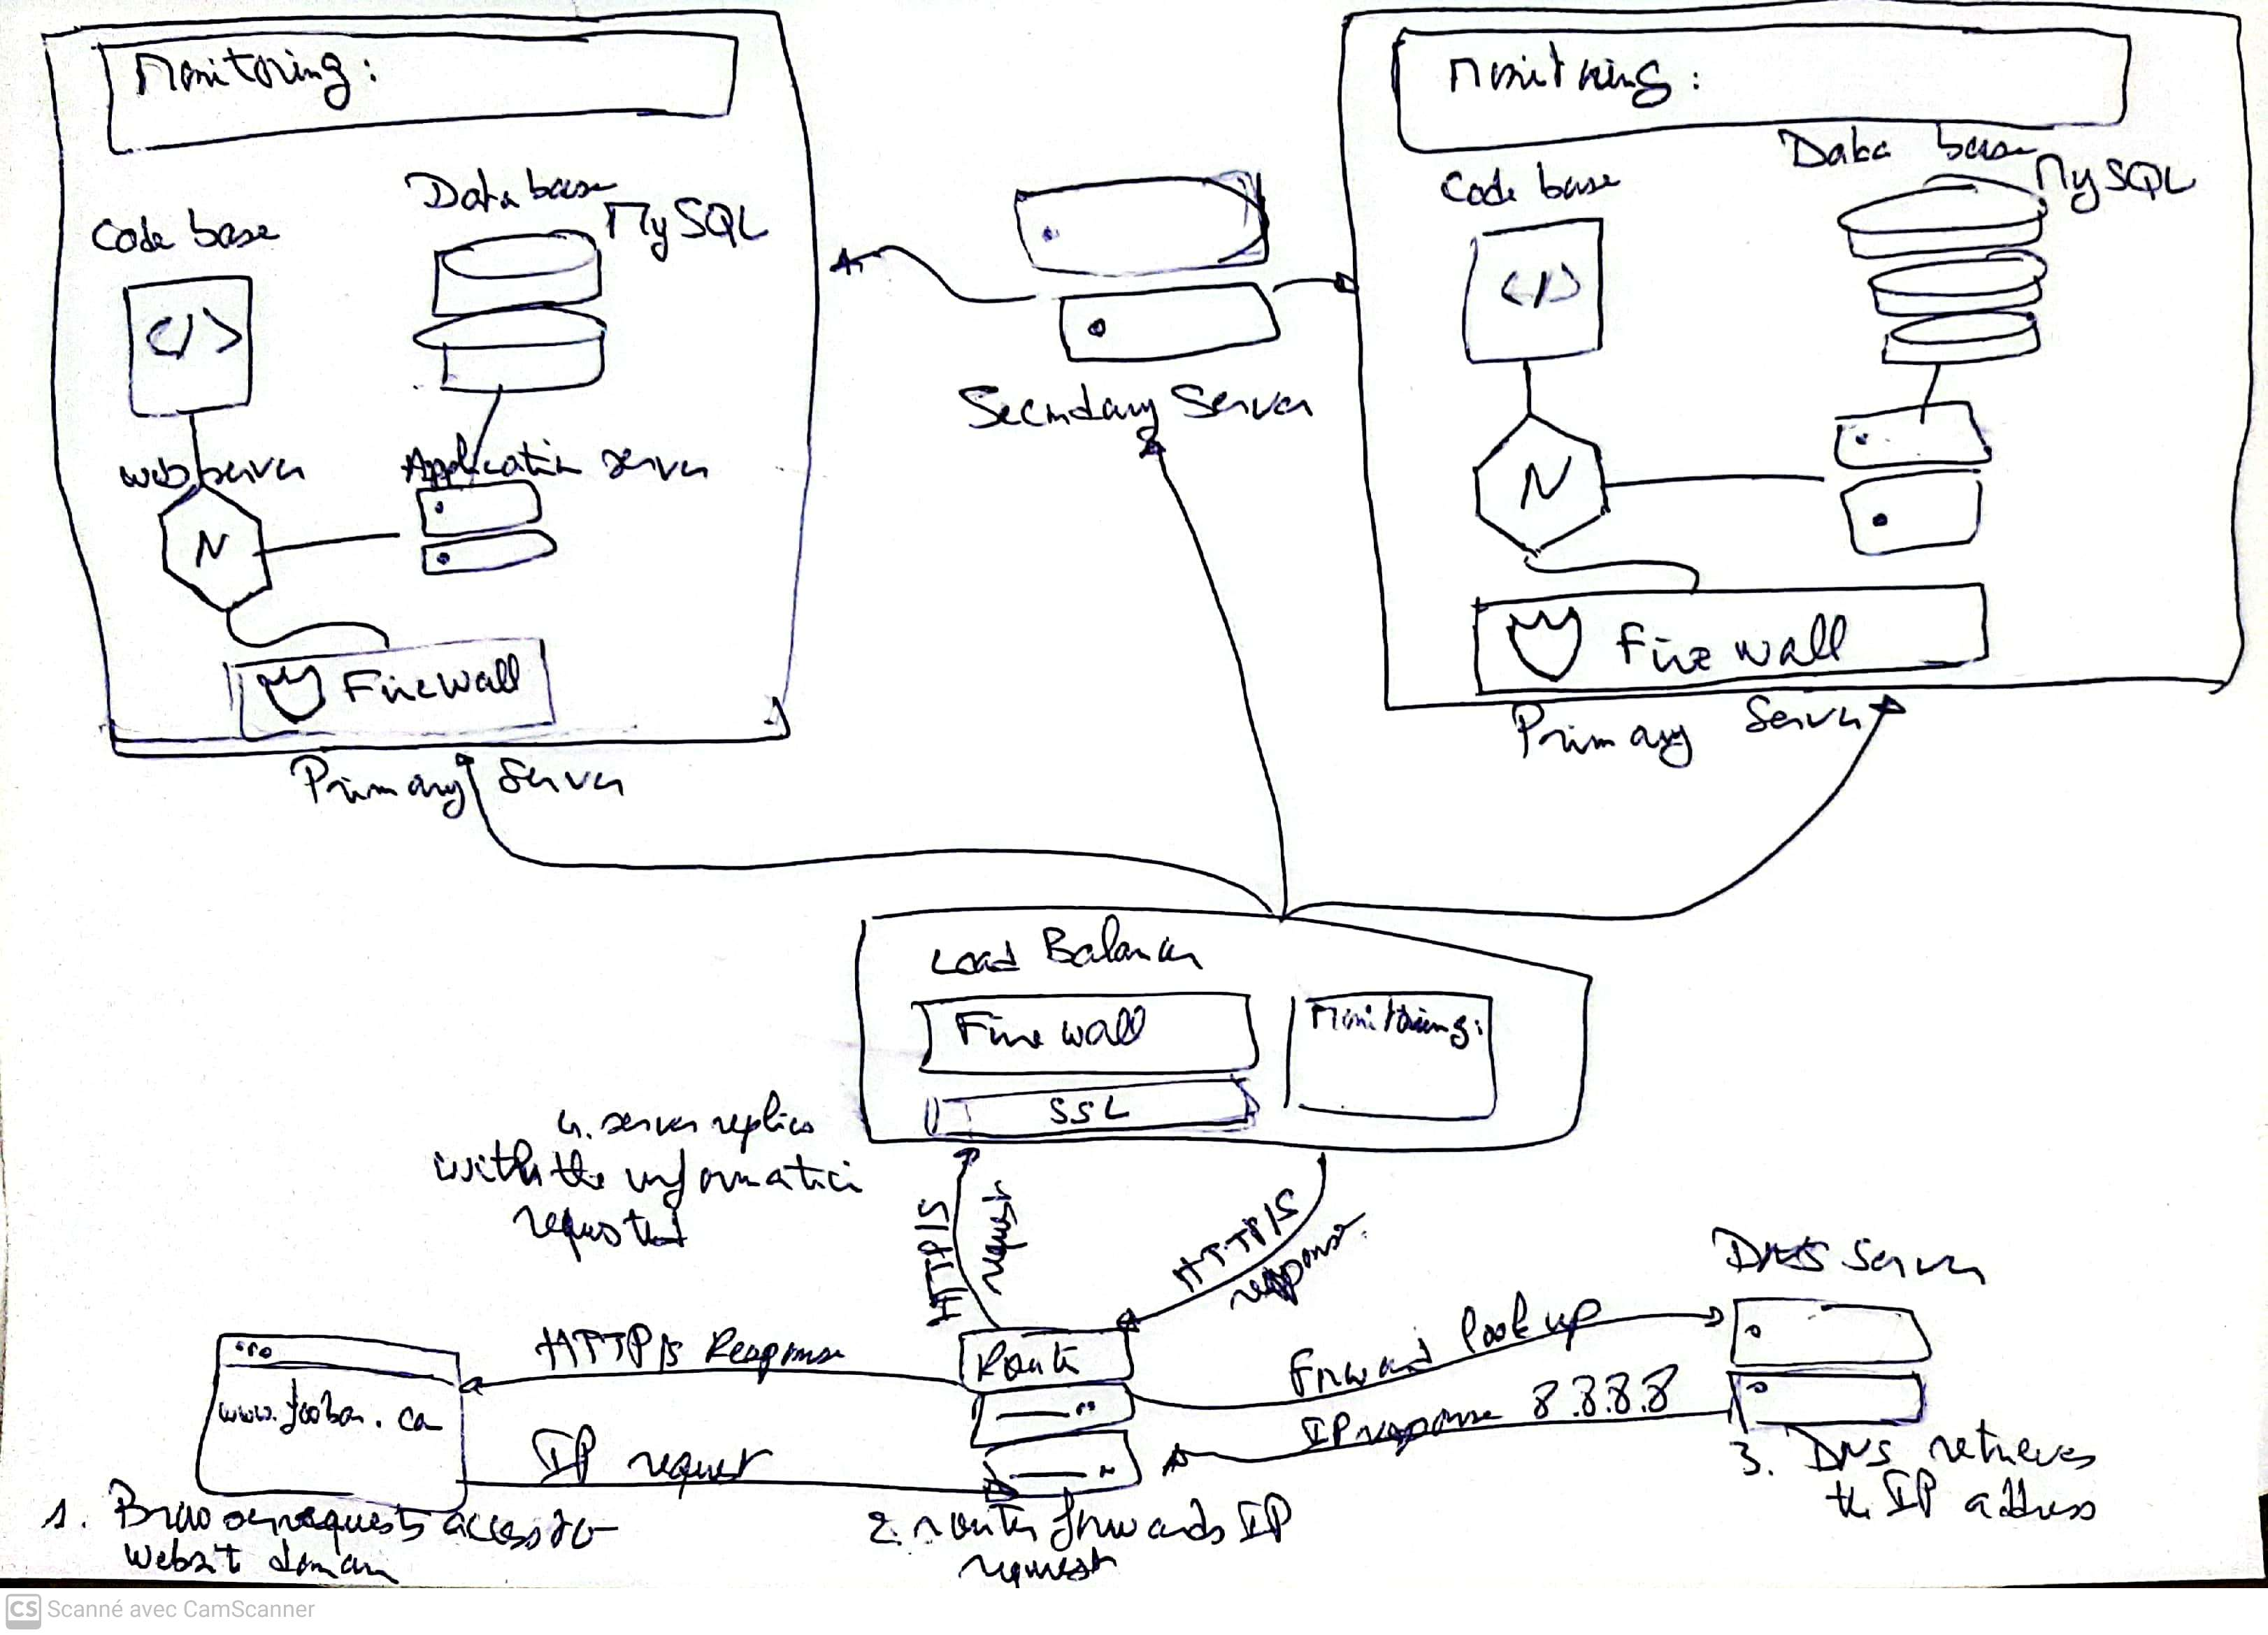 Monitoring:
Code base
Data base
MySQL
</>
web server
Application server
N
Firewall
Primary Server
Secondary Server
Monitoring:
Code base
Data base
MySQL
</>
N
Fire wall
Primary Server
Load Balancer
Fire wall
Monitoring:
SSL
4. server replies
with the information
requested
HTTP/S
request
HTTP/S
response.
DNS Server
www.foobar.ca
HTTP/S Response
IP request
Route
Forward look up
IP response 8.8.8.8
1. Browser requests access to
website domain
2. router forwards IP
request
3. DNS retrieves
the IP address
CS Scanné avec CamScanner